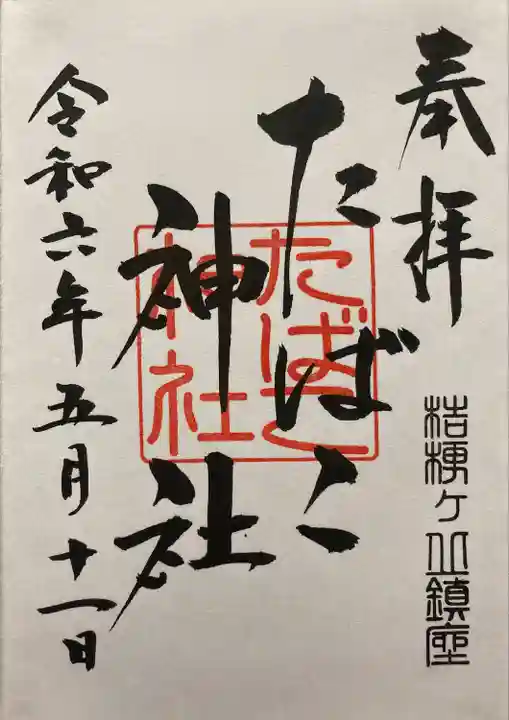 奉拝
桔梗ケ丘鎮座
たばこ
神社
たばこ
神社
令和六年五月十一日